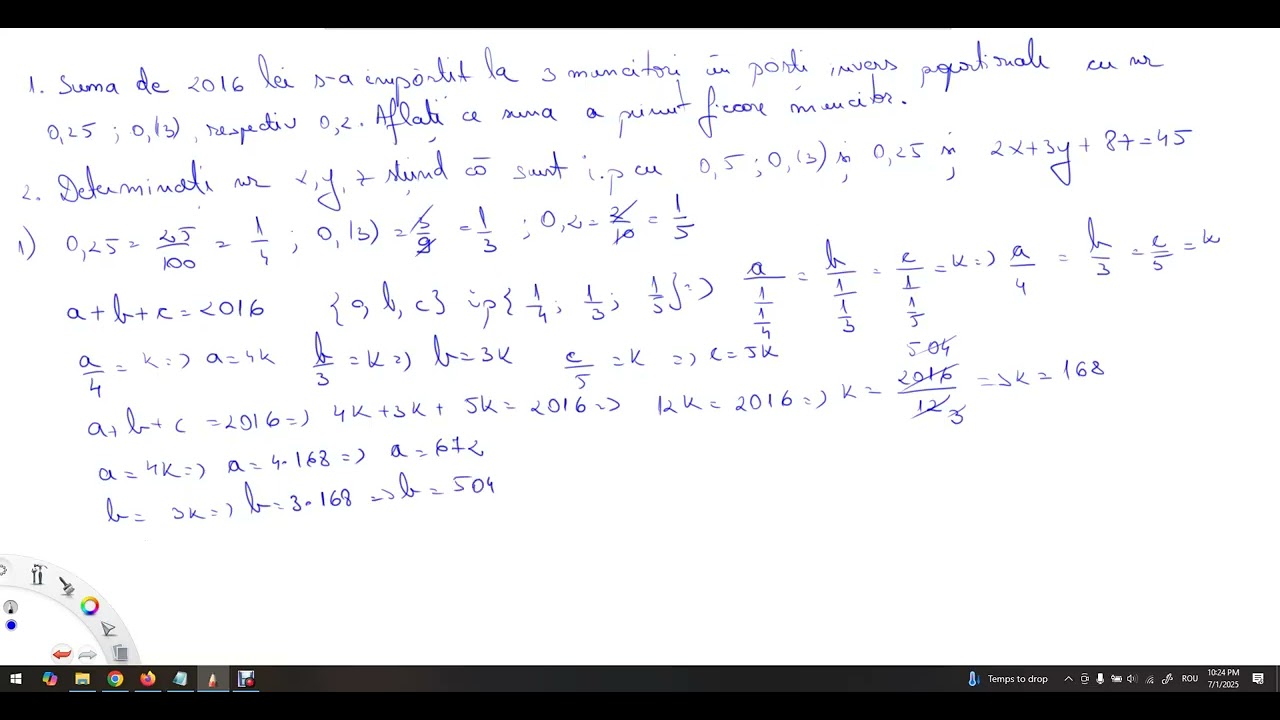 1. Suma de 2016 lei s-a împărțit la 3 muncitori în părți invers proporționale cu nr
0,25 ; 0,(3), respectiv 0,2. Aflați ce suma a primit fiecare muncitor.
2. Determinați nr x, y, z știind că sunt i.p cu 0,5 ; 0,(3) și 0,25 și 2x+3y+8z=45
1) 0,25 = 25/100 = 1/4 ; 0,(3) = 3/9 = 1/3 ; 0,2 = 2/10 = 1/5
a+b+c=2016 {a, b, c} i.p {1/4 ; 1/3 ; 1/5} => a/(1/(1/4)) = b/(1/(1/3)) = c/(1/(1/5)) = k => a/4 = b/3 = c/5 = k
a/4 = k => a=4k b/3 = k => b=3k c/5 = k => c=5k
a+b+c=2016 => 4k+3k+5k=2016 => 12k=2016 => k = 2016/12 504 3 => k=168
a=4k => a=4·168 => a=672
b=3k => b=3·168 => b=504
Temps to drop ROU 10:24 PM
7/1/2025